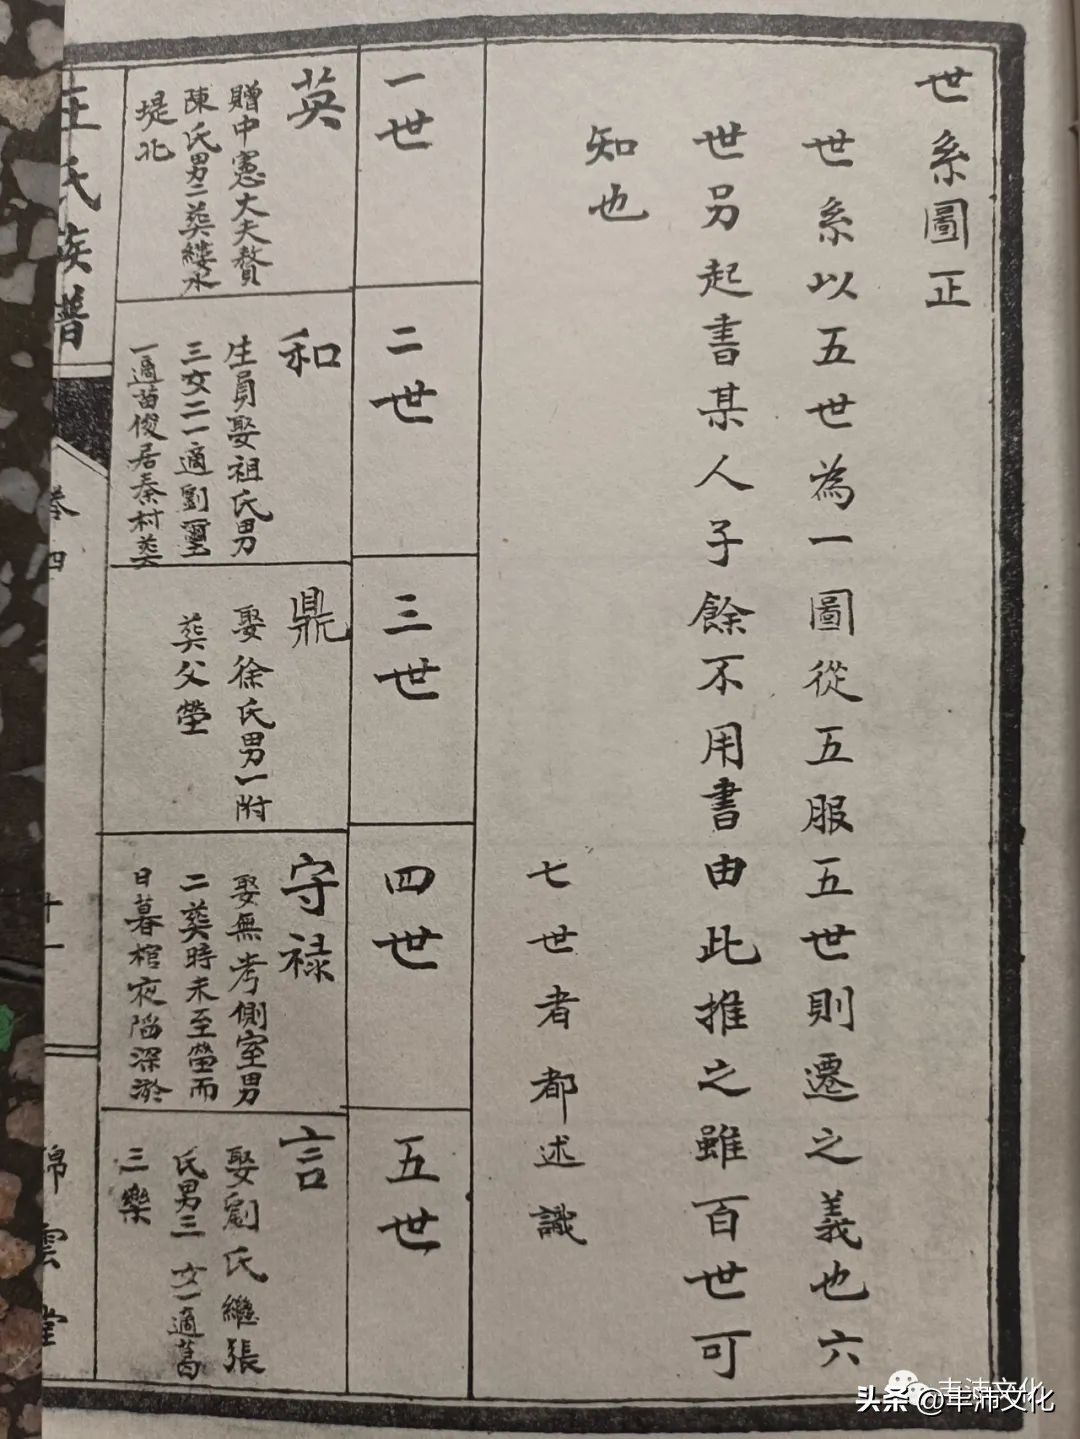 世系圖正
世系以五世為一圖從五服五世則遷之義也六
世另起書某人子餘不用書由此推之雖百世可
知也
七世者都述識
一世
二世
三世
四世
五世
英
贈中憲大夫贅
陳氏男二葬縷水
堤北
和
生員娶祖氏男
三女二一適劉璽
一適苗俊居秦村葬
鼎
娶徐氏男一附
葬父塋
守祿
娶無考側室男
二葬時未至塋而
日暮棺夜陷深淤
言
娶劉氏繼張
氏男三 女一適葛
三樂
氏族譜
卷四
十一
雲堂
头条 @丰沛文化